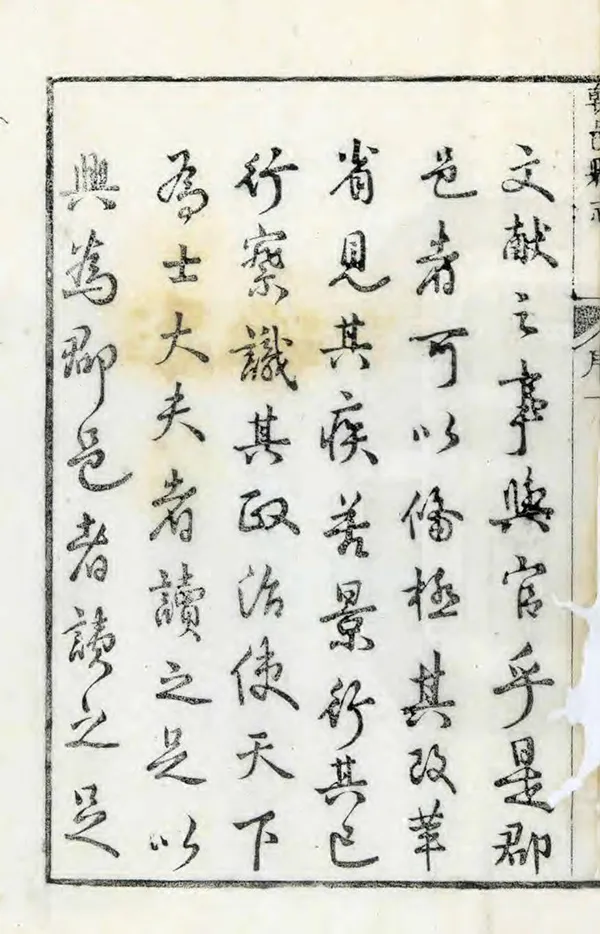 朝邑縣志
序
一
文献之事與官乎是郡
邑者可以備極其改革
省見其疾苦景行其已
行察識其政治使天下
為士大夫者讀之足以
興為郡邑者讀之足